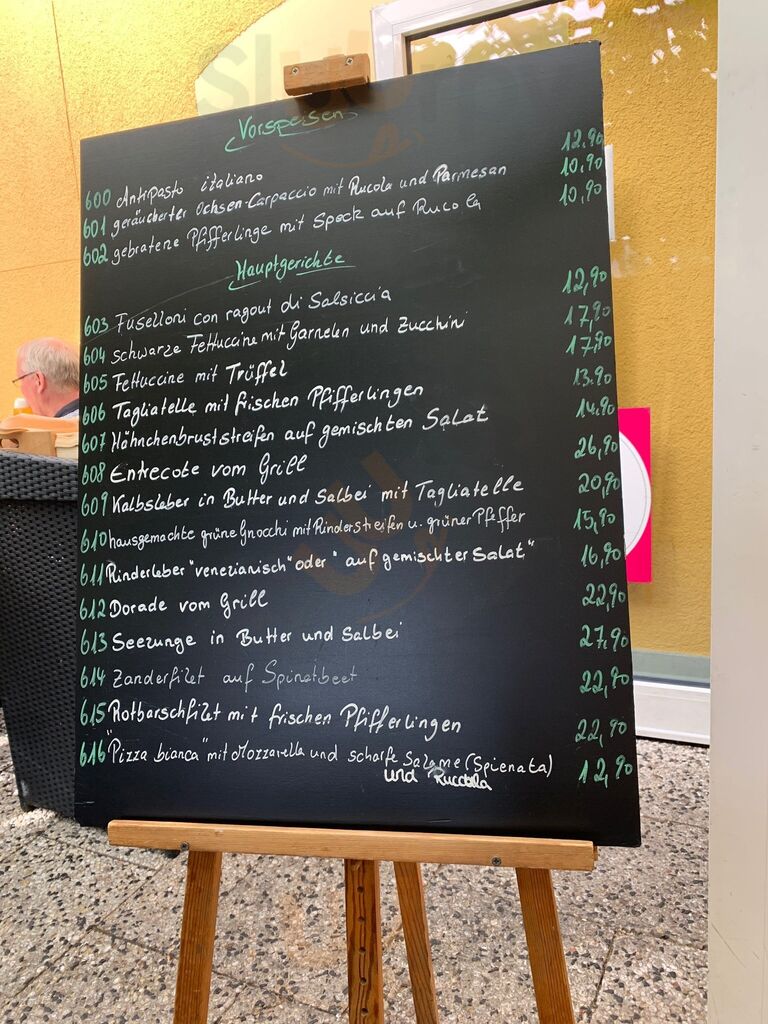 Vorspeisen
600 Antipasto italiano 12,90
601 geräucherter Ochsen-Carpaccio mit Rucola und Parmesan 10,90
602 gebratene Pfifferlinge mit Speck auf Rucola 10,90
Hauptgerichte
603 Fuselloni con ragout di Salsiccia 12,90
604 schwarze Fettuccine mit Garnelen und Zucchini 17,90
605 Fettuccine mit Trüffel 17,90
606 Tagliatelle mit frischen Pfifferlingen 13.90
607 Hähnchenbruststreifen auf gemischten Salat 14.90
608 Entrecote vom Grill 26,90
609 Kalbsleber in Butter und Salbei mit Tagliatelle 20,90
610 hausgemachte grüne Gnocchi mit Rinderstreifen u. grüner Pfeffer 15,90
611 Rinderleber "venezianisch" oder "auf gemischter Salat" 16,90
612 Dorade vom Grill 22,90
613 Seezunge in Butter und Salbei 27.90
614 Zanderfilet auf Spinatbeet 22,90
615 Rotbarschfilet mit frischen Pfifferlingen 22,90
616 "Pizza bianca" mit Mozzarella und scharfe Salame (Spienata) 12,90
und Ruccola